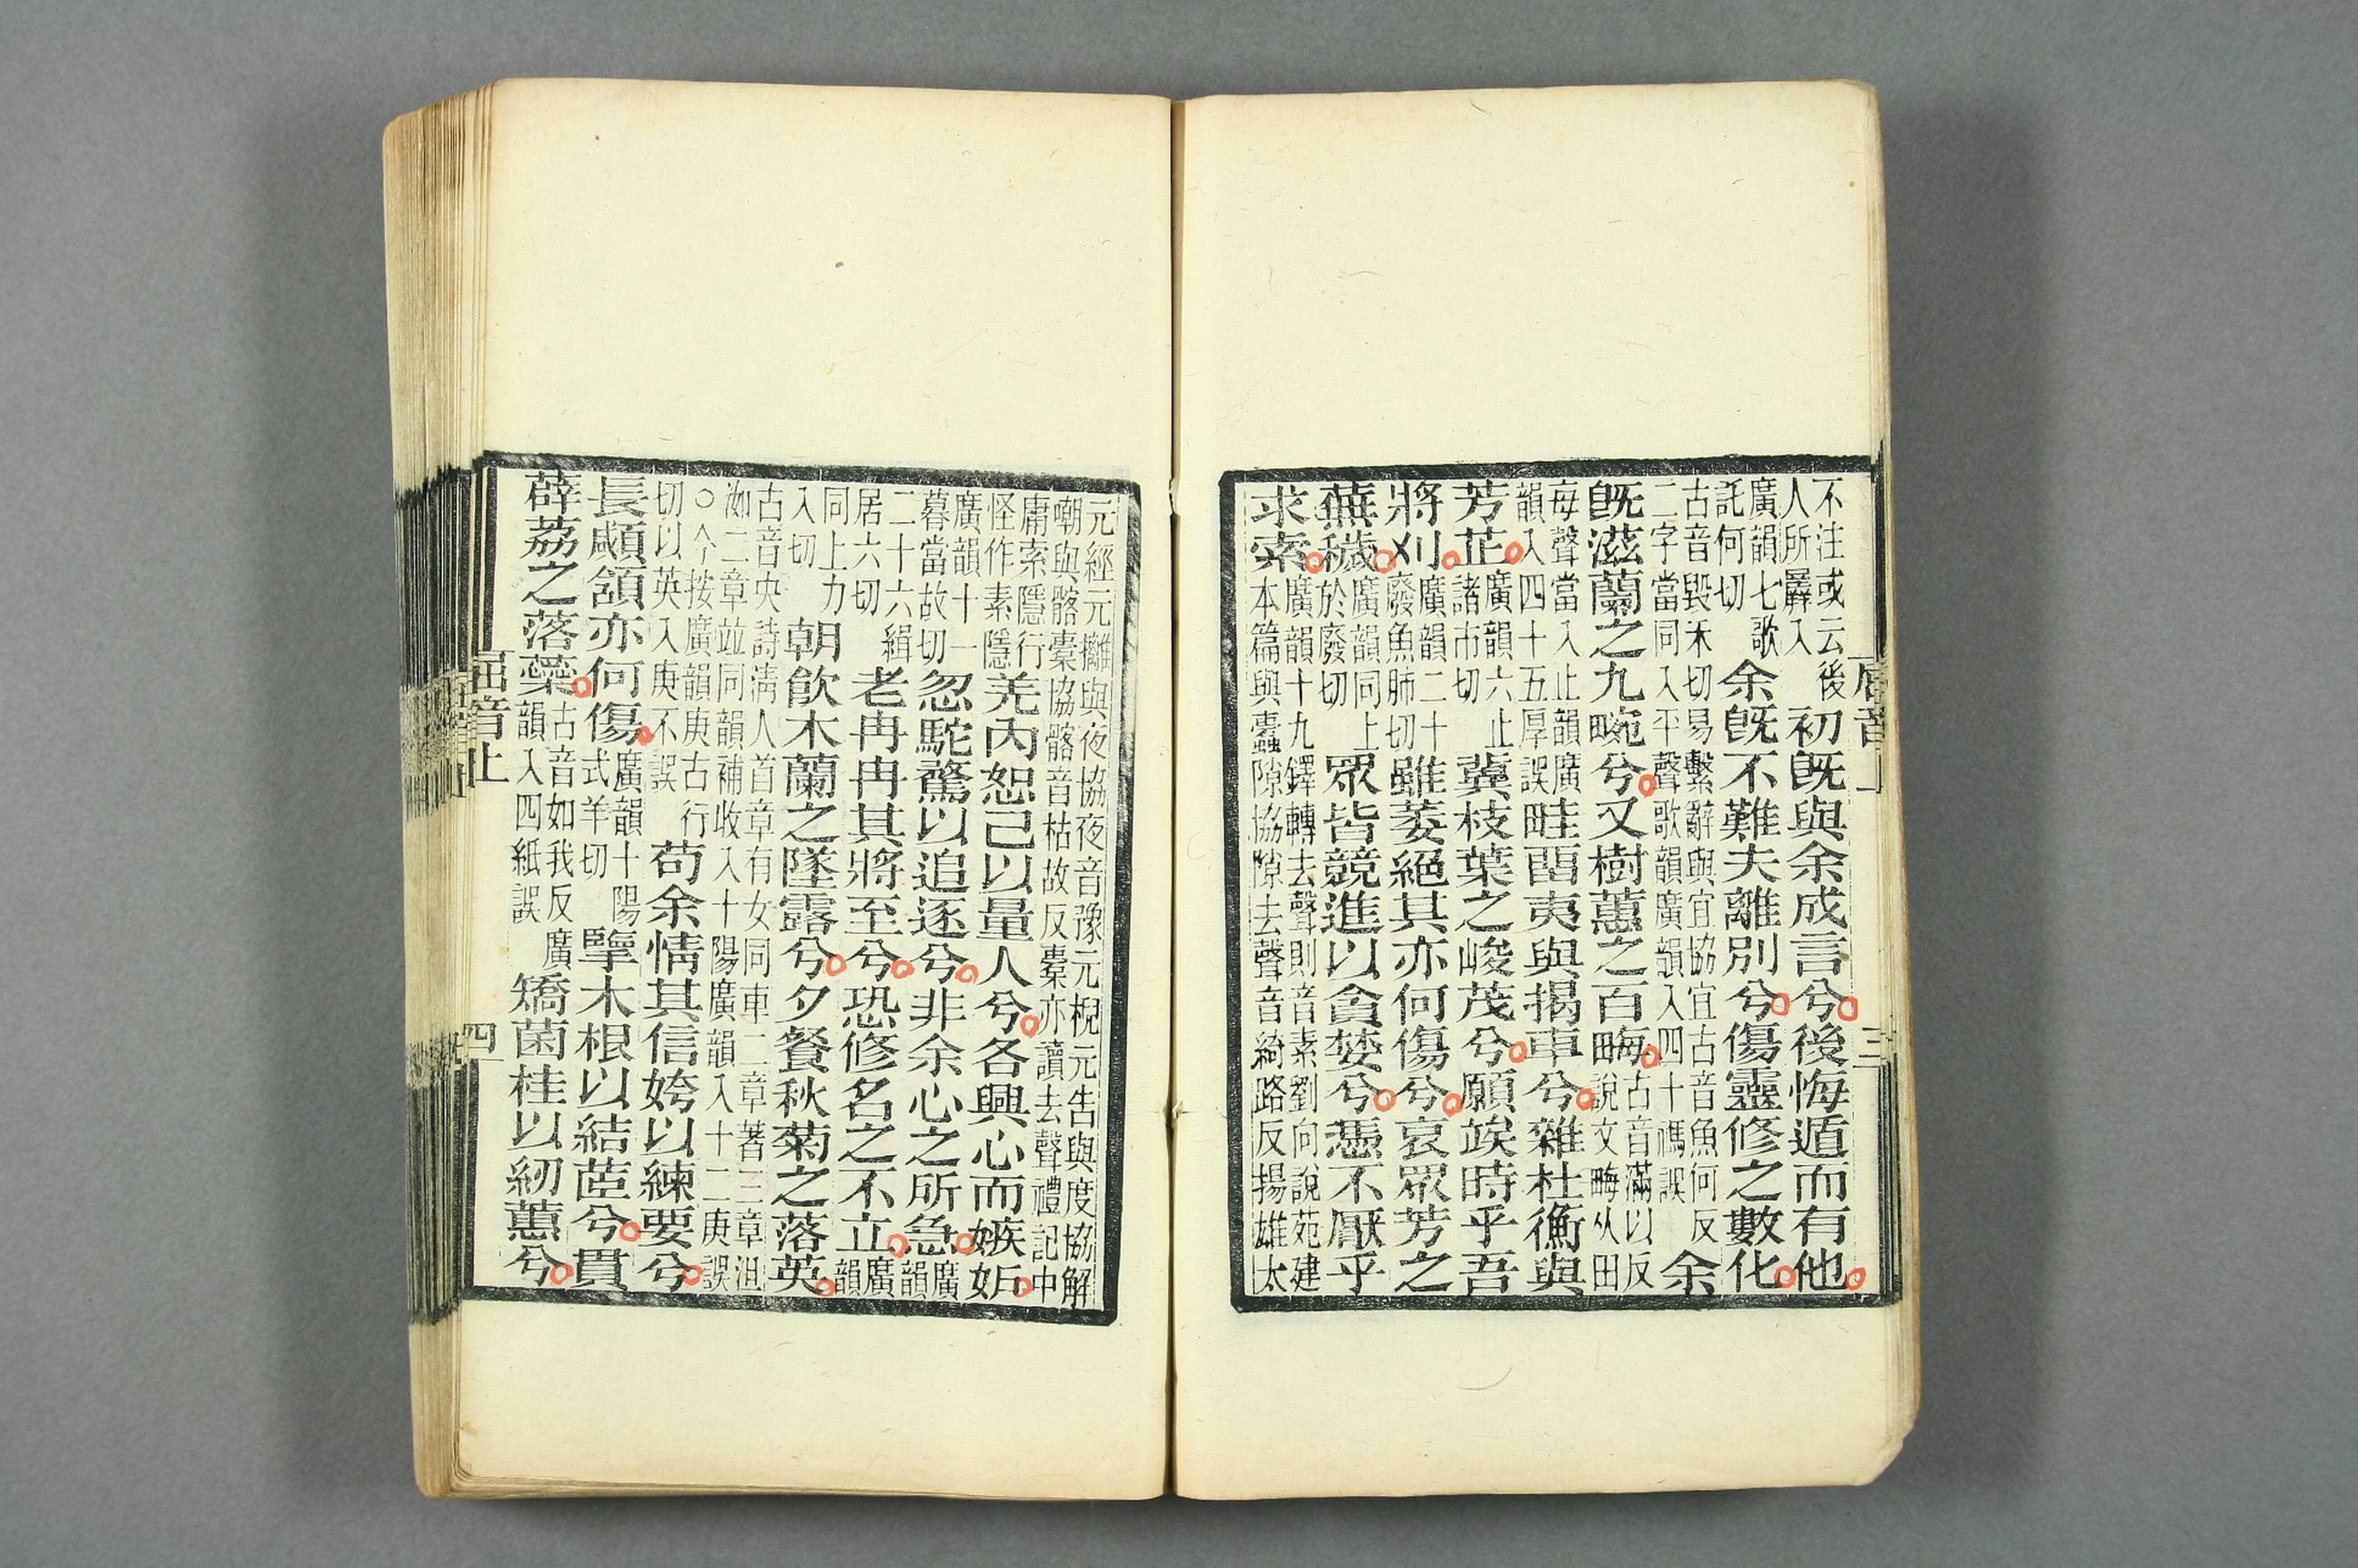 屈音上 三
不注或云後
人所羼入
初既與余成言兮後悔遁而有他
廣韻七歌
託何切
余既不難夫離別兮傷靈修之數化
古音毀禾切易繫辭與宜協宜古音魚何反
二字當同入平聲歌韻廣韻入四十禡誤
余
既滋蘭之九畹兮又樹蕙之百畮
古音滿以反
說文畮从田
每聲當入止韻廣
韻入四十五厚誤
畦畱夷與揭車兮雜杜衡與
芳芷
廣韻六止
諸市切
冀枝葉之峻茂兮願竢時乎吾
將刈
廣韻二十
廢魚肺切
雖萎絕其亦何傷兮哀眾芳之
蕪穢
廣韻同上
於廢切
眾皆競進以貪婪兮憑不厭乎
求索
廣韻十九鐸轉去聲則音素劉向說苑建
本篇與蠹隙協隙去聲音綺路反揚雄太
元經元攡與夜協夜音豫元棿元告與度協解
嘲與髂橐協髂音枯故反橐亦讀去聲禮記中
庸索隱行
怪作素隱
羌內恕己以量人兮各興心而嫉妒
廣韻十一
暮當故切
忽駝騖以追逐兮非余心之所急
廣
韻
二十六緝
居六切
老冉冉其將至兮恐修名之不立
廣
韻
同上力
入切
朝飲木蘭之墜露兮夕餐秋菊之落英
古音央詩淸人首章有女同車二章著三章沮
洳二章竝同韻補收入十陽廣韻入十二庚誤
○今按廣韻庚古行
切以英入庚不誤
苟余情其信姱以練要兮
長顑頷亦何傷
廣韻十陽
式羊切
擥木根以結茝兮貫
薜荔之落蘂
古音如我反廣
韻入四紙誤
矯菌桂以紉蕙兮
屈音上 四